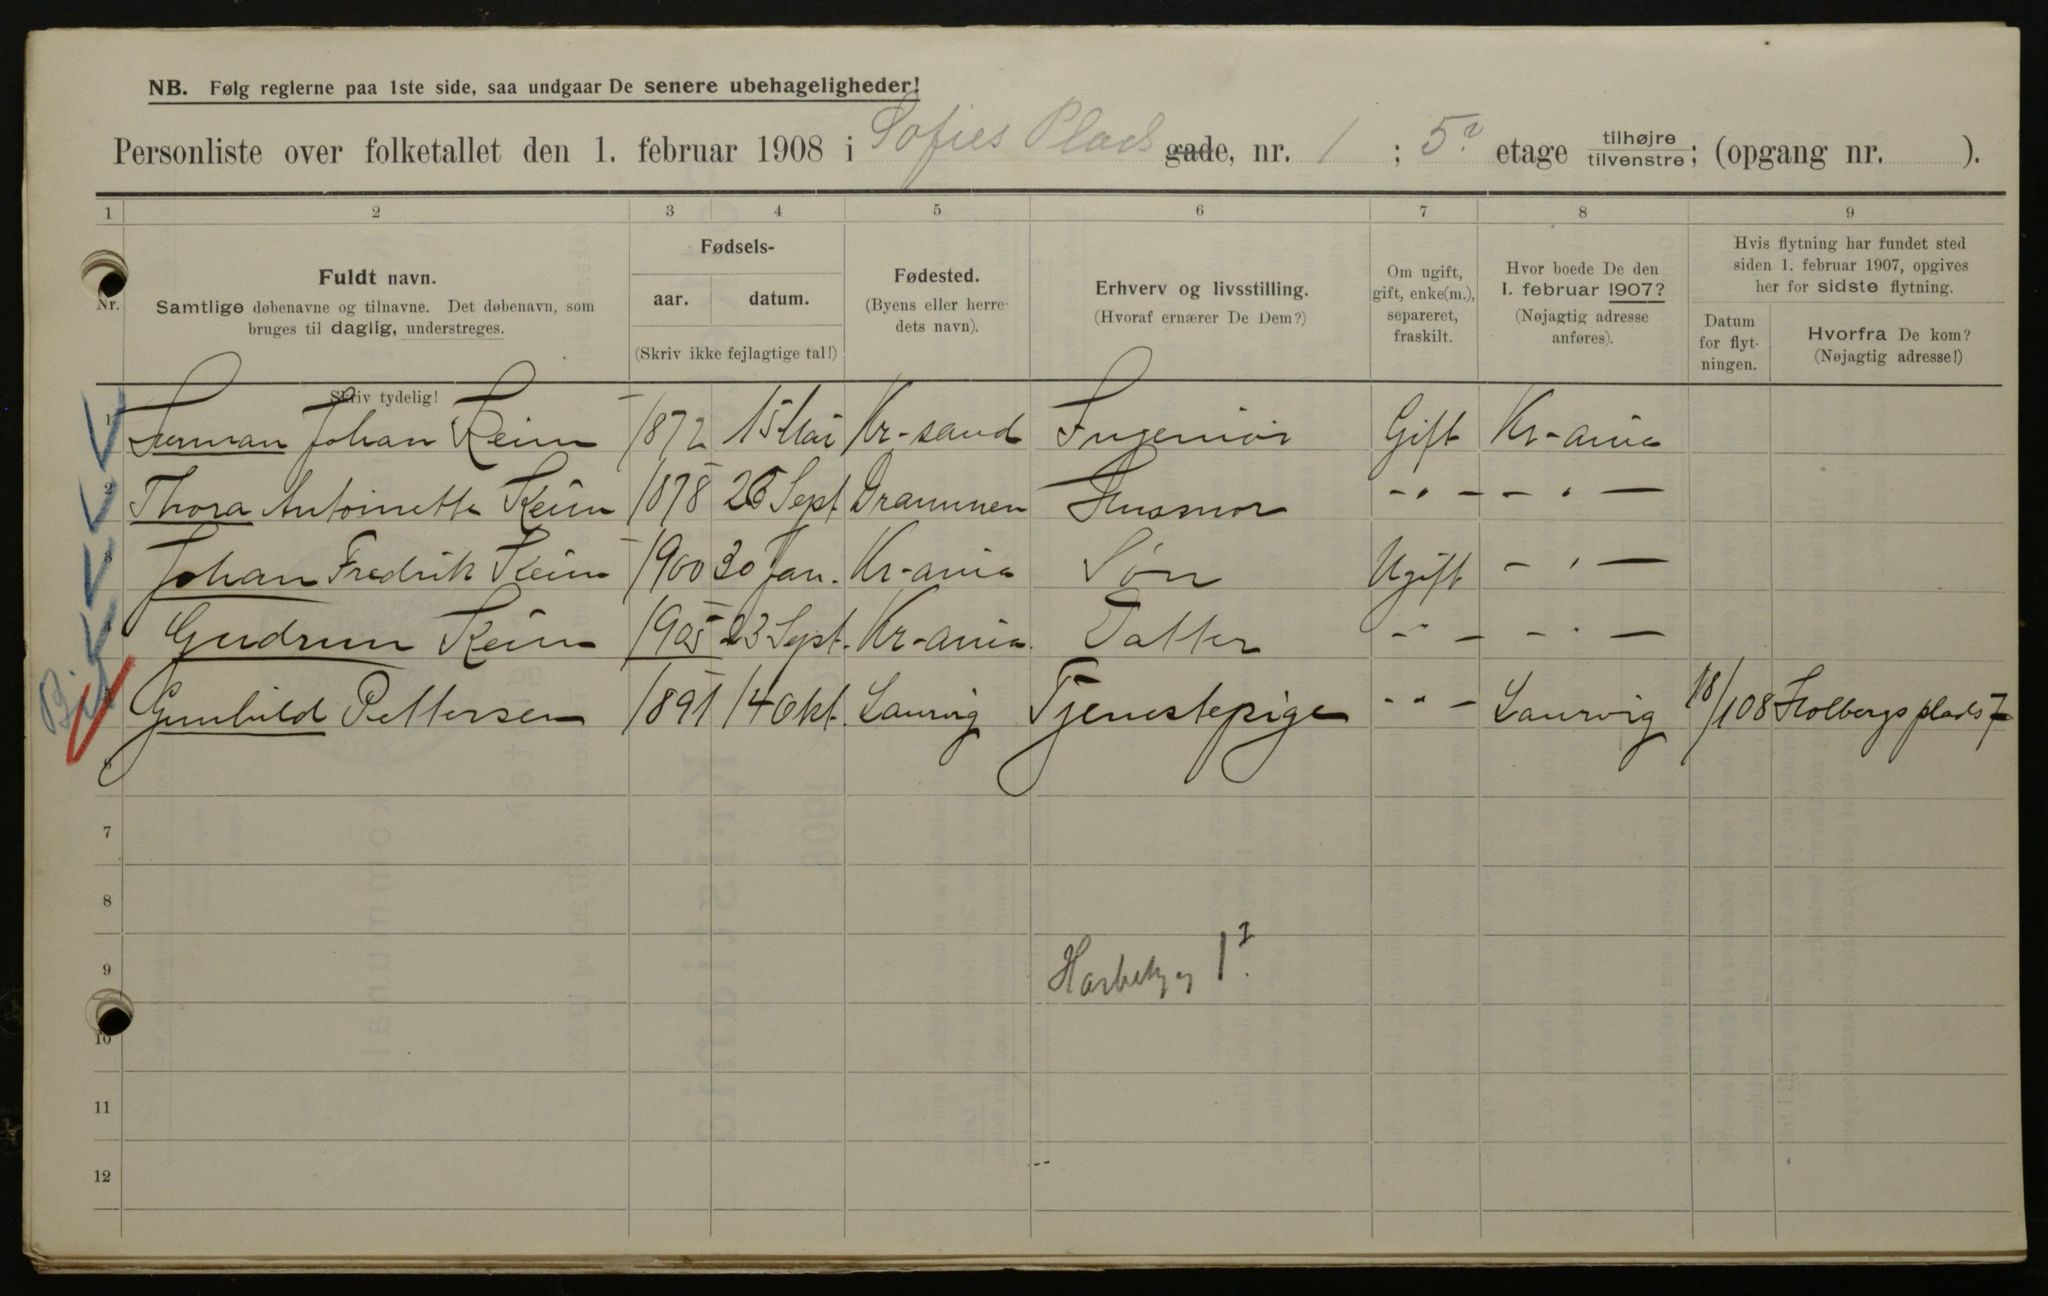 NB. Følg reglerne paa 1ste side, saa undgaar De senere ubehageligheder!
Personliste over folketallet den 1. februar 1908 i Sofies Plads gade, nr. 1 ; 5. etage tilhøjre tilvenstre; (opgang nr. ).
1 2 3 4 5 6 7 8 9
Nr.
Fuldt navn.
Samtlige døbenavne og tilnavne. Det døbenavn, som
bruges til daglig, understreges.
Skriv tydelig!
Fødsels-
aar. datum.
(Skriv ikke fejlagtige tal!)
Fødested.
(Byens eller herre-
dets navn).
Erhverv og livsstilling.
(Hvoraf ernærer De Dem?)
Om ugift,
gift, enke(m.),
separeret,
fraskilt.
Hvor boede De den
1. februar 1907?
(Nøjagtig adresse
anføres).
Hvis flytning har fundet sted
siden 1. februar 1907, opgives
her for sidste flytning.
Datum
for flyt-
ningen.
Hvorfra De kom?
(Nøjagtig adresse!)
1 Johan Keim 1872 15 Mai Kr-sand Ingeniør Gift Kr-ania
2 Thora Antoinette Keim 1878 Sept Drammen Husmor -"- -"-
3 Johan Fredrik Keim 1900 30 Jan. Kr-ania Søn Ugift -"-
4 Gudrun Keim 1905 23 Sept. Kr-ania Datter -"- -"-
5 Gunhild Pettersen 1891 14 Okt. Laurvig Tjenestepige -"- Laurvig 18/1 08 Holbergs plads 7
6
7
8
9
10
11
12